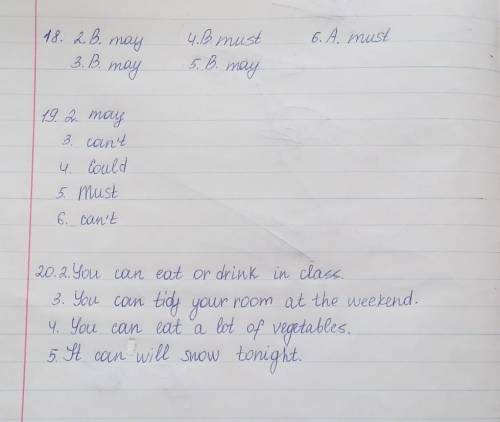 18. 2. B. may 4. B. must 6. A. must
3. B. may 5. B. may
19. 2. may
3. can't
4. Could
5. Must
6. can't
20. 2. You can eat or drink in class.
3. You can tidy your room at the weekend.
4. You can eat a lot of vegetables.
5. It can will snow tonight.